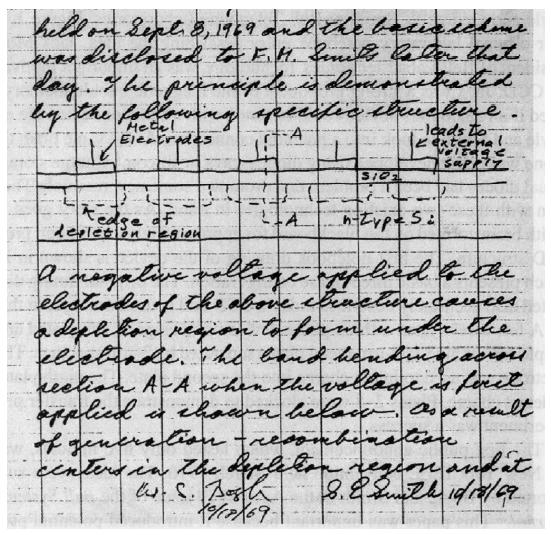 held on Sept. 8, 1969 and the basic scheme
was disclosed to F. M. Smits later that
day. The principle is demonstrated
by the following specific structure.
Metal
Electrodes
A
leads to
external
voltage
supply
SiO2
edge of
depletion region
A
n-type Si
A negative voltage applied to the
electrodes of the above structure causes
a depletion region to form under the
electrode. The band bending across
section A-A when the voltage is first
applied is shown below. As a result
of generation - recombination
centers in the depletion region and at
W. S. Boyle
G. E. Smith 10/18/69
10/18/69